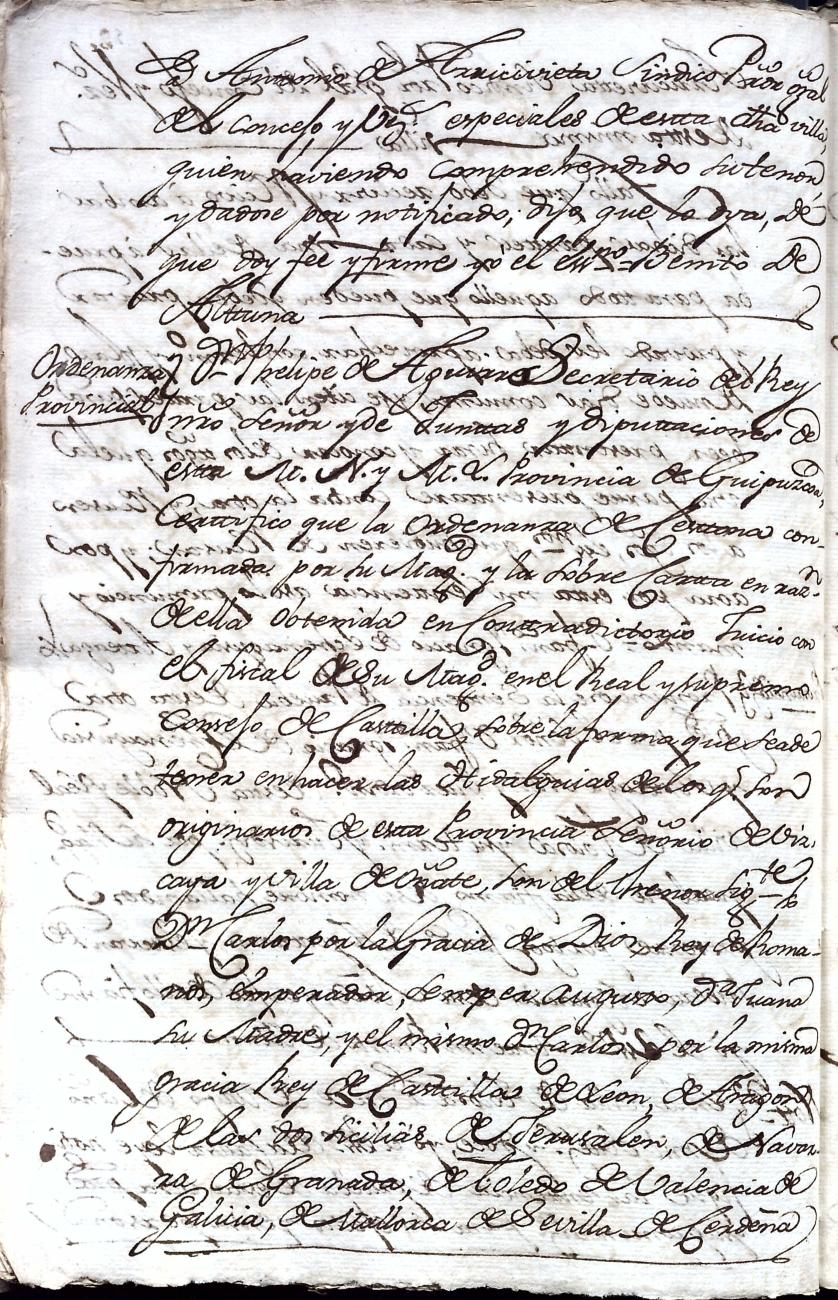 Dn Antonio de Arriccivieta Sindico Prōr gral
del Concejo, y Vez.s especiales de esta dha villa,
quien haviendo Comprehendido su tenor
y dadose por notificado; dijo que la oya, de
que doy fee y firme yo el essno Benito de
Alttuna
Ordenanza
Provincial
Dn Phelipe de Aguirre Secretario del Rey
nrō Señor y de Junttas y diputtaciones de
estta M. N. y M. L. Provincia de Guipuzcoa,
Certifico que la Ordenanza de Cestona con-
firmada por su Magd. y la Sobre Cartta en razn.
de ella obtenida en Conttradictorio Juicio con
el fiscal de Su Magd. en el Real y supremo
Consejo de Casttilla, sobre la forma que se ade
tener en hacer las Hidalguias de los q.e son
originarios de estta Provincia Señorio de Viz-
caya y villa de Oñate, son del thenor sigte
Dn Carlos por la Gracia de Dios, Rey de Roma-
nos, emperador, semper augusto, Da Juana
su Madre, y el mismo Dn Carlos por la misma
gracia Rey de Casttilla, de Leon, de Aragon
de las dos Sicilias de Jerusalen, de Navar-
ra de Granada, de Toledo de Valencia de
Galicia, de Mallorca de Sevilla de Cerdeña